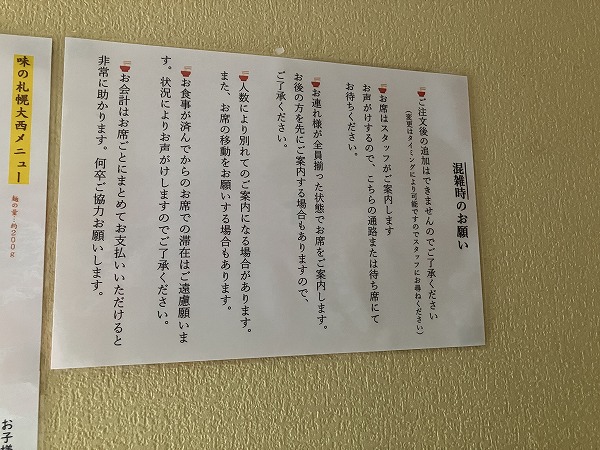 混雑時のお願い
ご注文後の追加はできませんのでご了承ください
(変更はタイミングにより可能ですのでスタッフにお尋ねください)
お席はスタッフがご案内します
お声がけするので、こちらの通路または待ち席にて
お待ちください。
お連れ様が全員揃った状態でお席をご案内します。
お後の方を先にご案内する場合もありますので、
ご了承ください。
人数により別れてのご案内になる場合があります。
また、お席の移動をお願いする場合もあります。
お食事が済んでからのお席での滞在はご遠慮願いま
す。状況によりお声がけしますのでご了承ください。
お会計はお席ごとにまとめてお支払いいただけると
非常に助かります。何卒ご協力お願いします。
味の札幌大西メニュー
麺の量：約200g
お子様